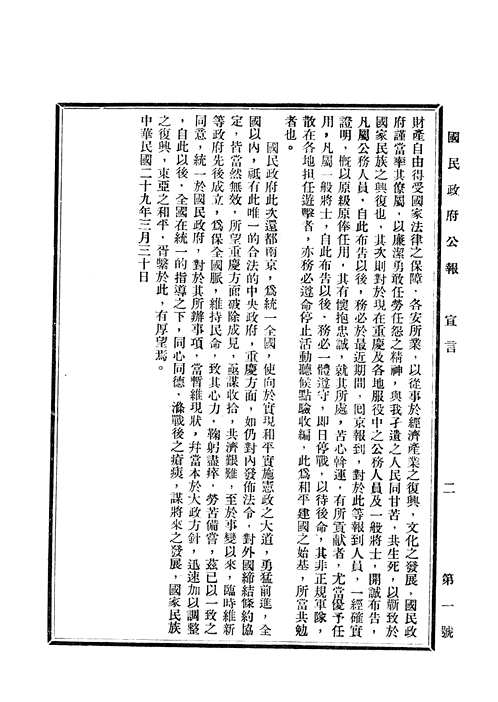 國民政府公報　宣言　二　第一號
財產自由得受國家法律之保障．各安所業．以從事於經濟產業之復興．文化之發展．國民政
府謹當率其僚屬．以廉潔勇敢任勞任怨之精神．與我孑遺之人民同甘苦．共生死．以蘄致於
國家民族之興復也．其次則對於現在重慶及各地服役中之公務人員及一般將士．開誠布告．
凡屬公務人員．自此布告以後．務必於最近期間．囘京報到．對於此等報到人員．一經確實
證明．慨以原級原俸任用．其有懷抱忠誠．就其所處．苦心斡運．有所貢獻者．尤當優予任
用．凡屬一般將士．自此布告以後．務必一體遵守．即日停戰．以待後命．其非正規軍隊．
散在各地担任遊擊者．亦務必遵命停止活動聽候點驗收編．此爲和平建國之始基．所當共勉
者也。
國民政府此次還都南京．爲統一全國．使向於實現和平實施憲政之大道．勇猛前進．全
國以內．祇有此唯一的合法的中央政府．重慶方面．如仍對內發佈法令．對外國締結條約協
定．皆當然無效．所望重慶方面破除成見．亟謀收拾．共濟艱難．至於事變以來．臨時維新
等政府先後成立．爲保全國脈．維持民命．致其心力．鞠躬盡瘁．勞苦備嘗．茲已以一致之
同意．統一於國民政府．對於其所辦事項．當暫維現狀．幷當本於大政方針．迅速加以調整
．自此以後．全國在統一的指導之下．同心同德．滌戰後之瘡痍．謀將來之發展．國家民族
之復興．東亞之和平．胥繫於此．有厚望焉。
中華民國二十九年三月三十日